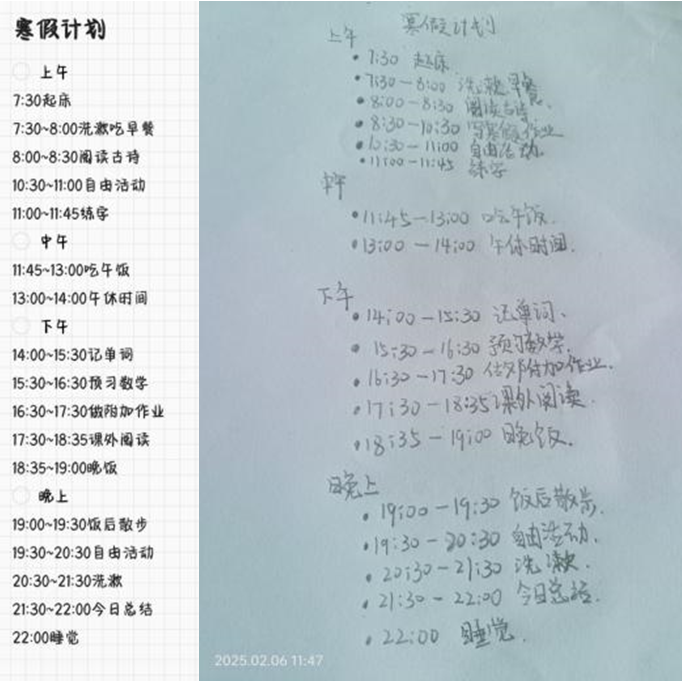 寒假计划
上午
7:30起床
7:30~8:00洗漱吃早餐
8:00~8:30阅读古诗
10:30~11:00自由活动
11:00~11:45练字
中午
11:45~13:00吃午饭
13:00~14:00午休时间
下午
14:00~15:30记单词
15:30~16:30预习数学
16:30~17:30做附加作业
17:30~18:35课外阅读
18:35~19:00晚饭
晚上
19:00~19:30饭后散步
19:30~20:30自由活动
20:30~21:30洗漱
21:30~22:00今日总结
22:00睡觉
寒假计划
上午
7:30 起床
7:30-8:00 洗漱早餐.
8:00-8:30 阅读古诗.
8:30-10:30 写寒假作业
10:30-11:00 自由活动.
11:00-11:45 练字
中午
11:45-13:00 吃午饭.
13:00-14:00 午休时间.
下午
14:00-15:30 记单词.
15:30-16:30 预习数学.
16:30-17:30 做附加作业.
17:30-18:35 课外阅读.
18:35-19:00 晚饭.
晚上
19:00-19:30 饭后散步.
19:30-20:30 自由活动.
20:30-21:30 洗漱.
21:30-22:00 今日总结.
22:00 睡觉.
2025.02.06 11:47